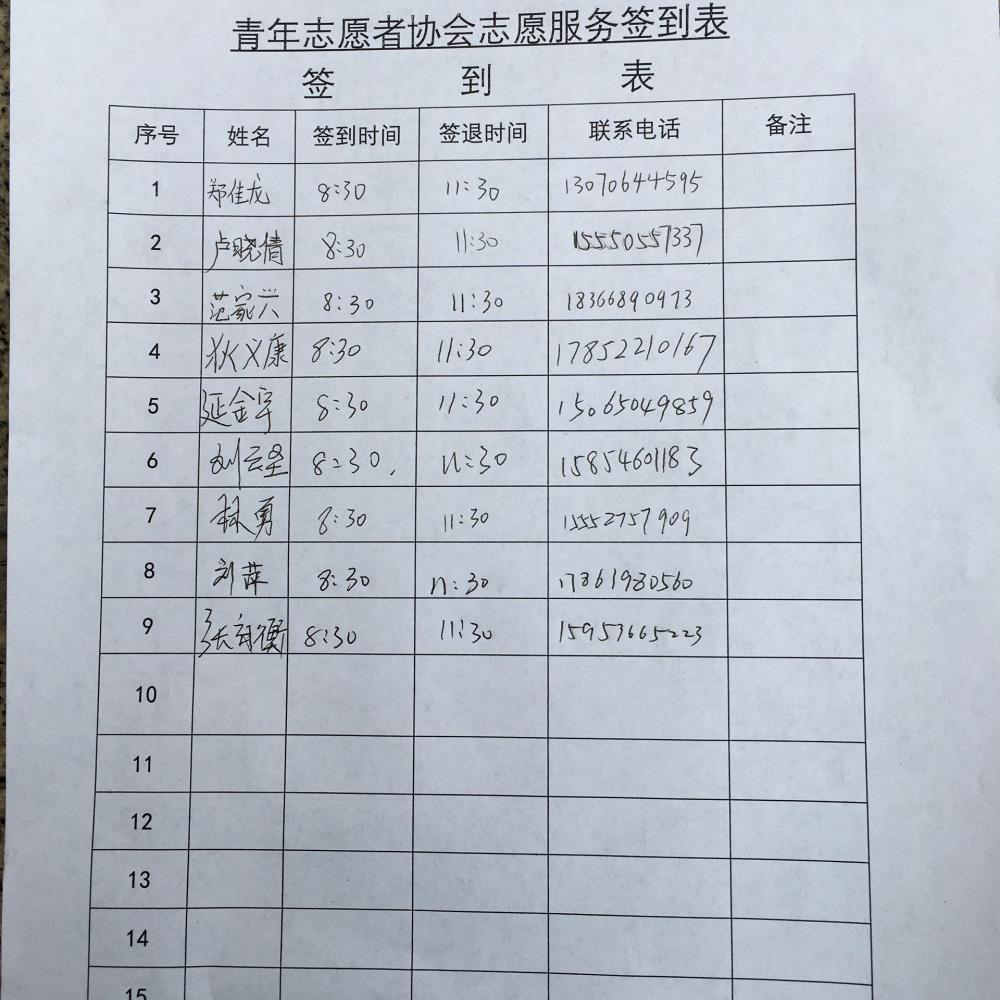 青年志愿者协会志愿服务签到表
签 到 表
序号 姓名 签到时间 签退时间 联系电话 备注
1 郑佳龙 8:30 11:30 13070644595
2 卢晓倩 8:30 11:30 15550557337
3 范家兴 8:30 11:30 18366890973
4 狄义康 8:30 11:30 17852210167
5 延金宇 8:30 11:30 15065049859
6 刘云圣 8:30. 11:30 15854601183
7 林勇 8:30 11:30 15552757909
8 刘萍 8:30 11:30 17861980560
9 张 衡 8:30 11:30 15953665223
10
11
12
13
14
15